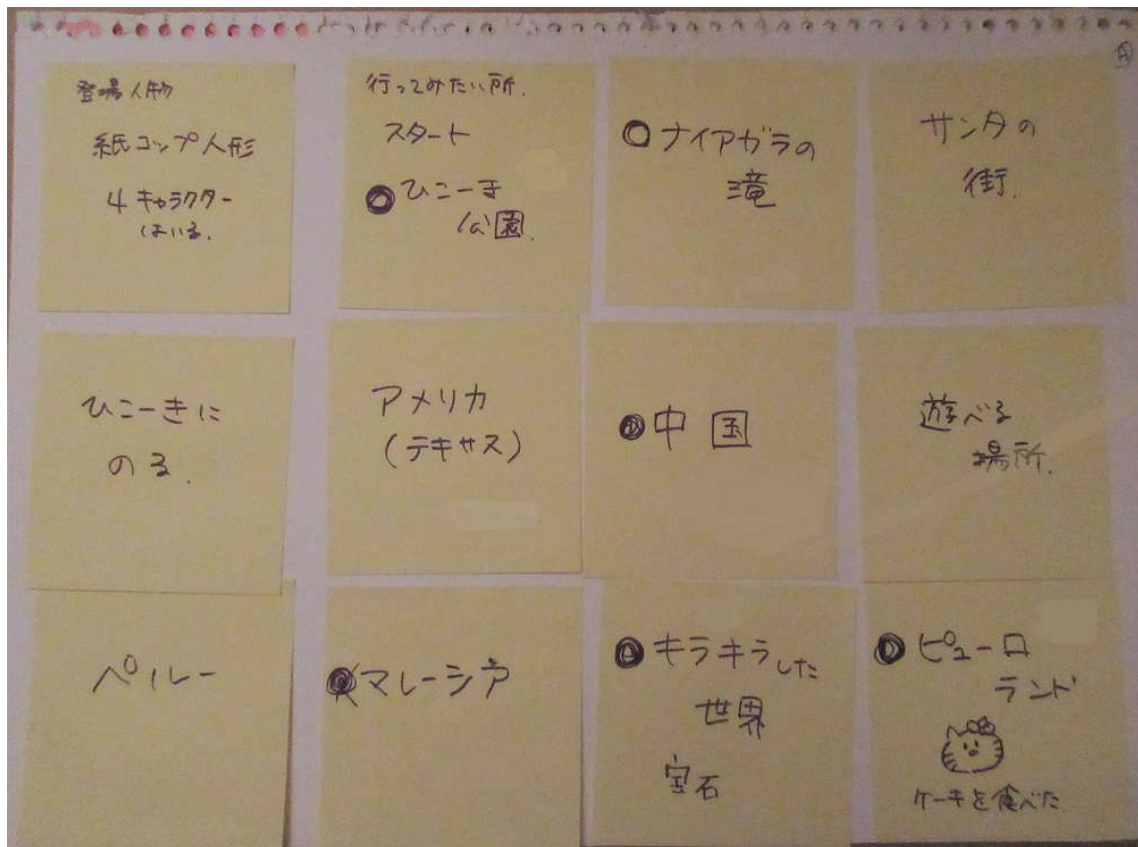 登場人物
紙コップ人形
4キャラクター
はいる.
行ってみたい所.
スタート
ひこーき
公園.
ナイアガラの
滝
サンタの
街.
ひこーきに
のる.
アメリカ
(テキサス)
中国
遊べる
場所.
ペルー
マレーシア
キラキラした
世界
宝石
ピューロ
ランド
ケーキを食べた